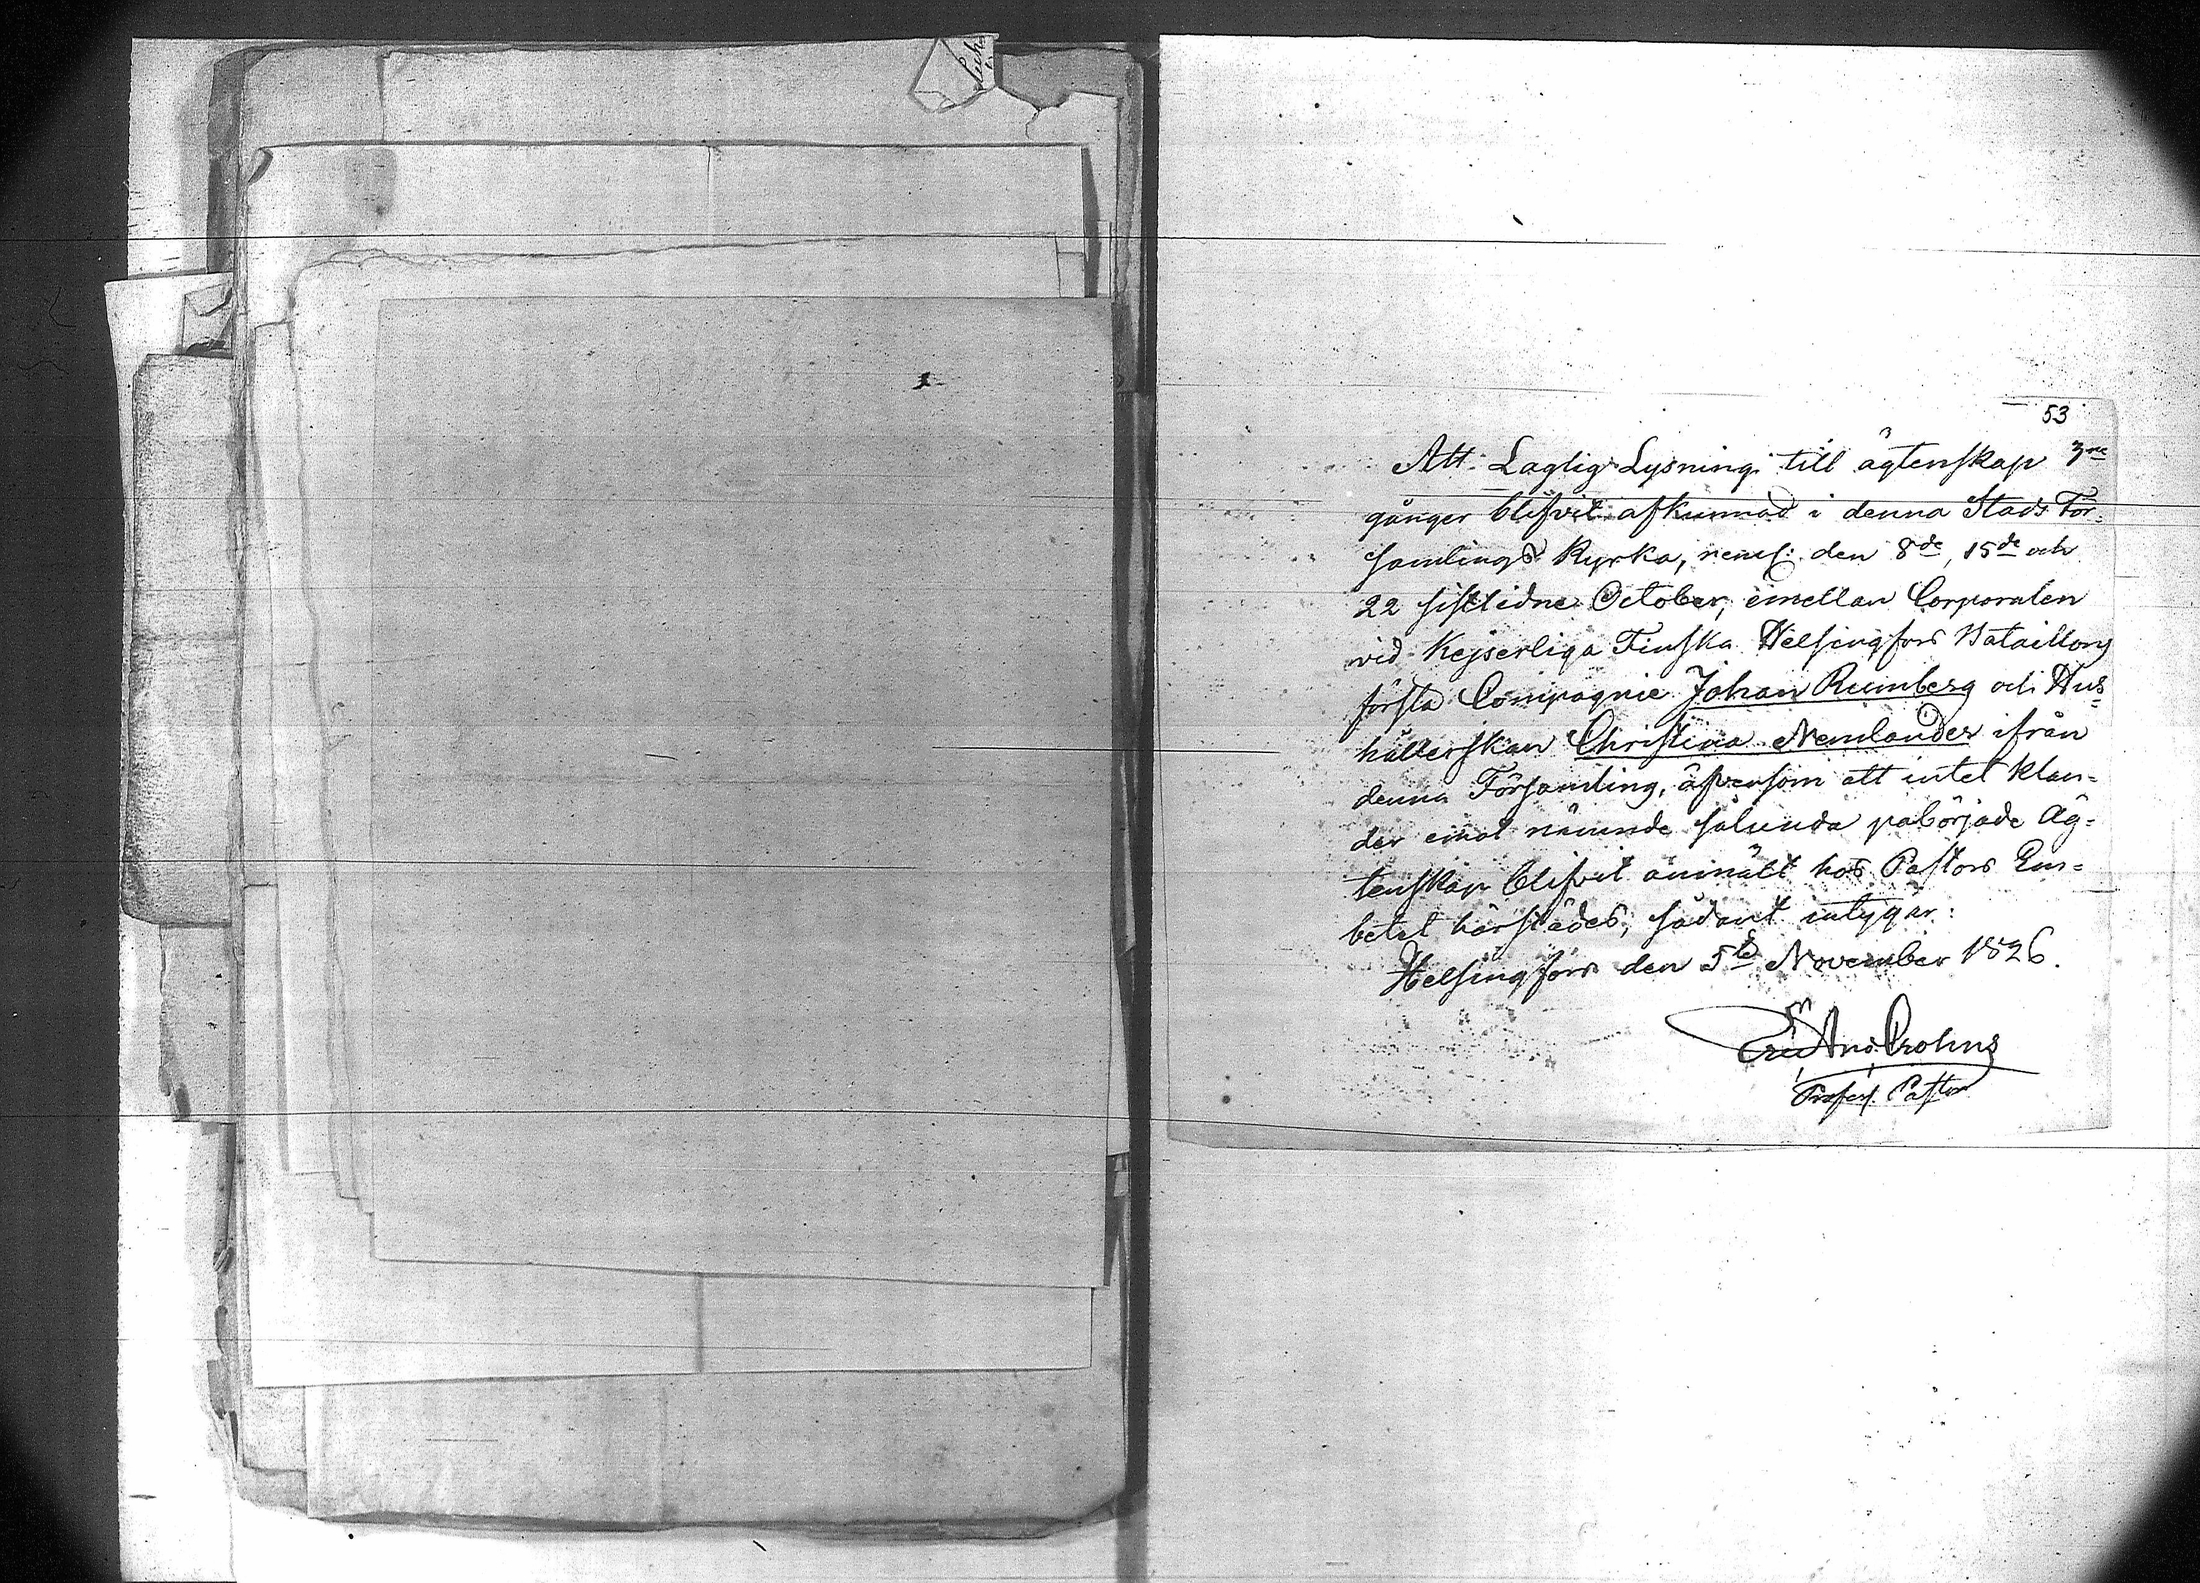 53
Att Laglig Lysning till ägtenskap 3ne
gånger blifvit afkunnad i denna Stads För-
samlings Kyrka, neml: den 8de, 15de och
22 sistlidne October, emellan Corporalen
vid Kejserliga Finska Helsingfors Bataillons
första Compagnie Johan Rumberg och Hus-
hållerskan Christina Nemlander ifrån
denna Församling, äfvensom att intet klan-
der emot nämnde sålunda påbörjade Äg-
tenskap blifvit anmält hos Pastors Em-
betet härstädes, sådant intygar:
Helsingfors den 5te November 1826.
Eric And. Crohns
Pastor